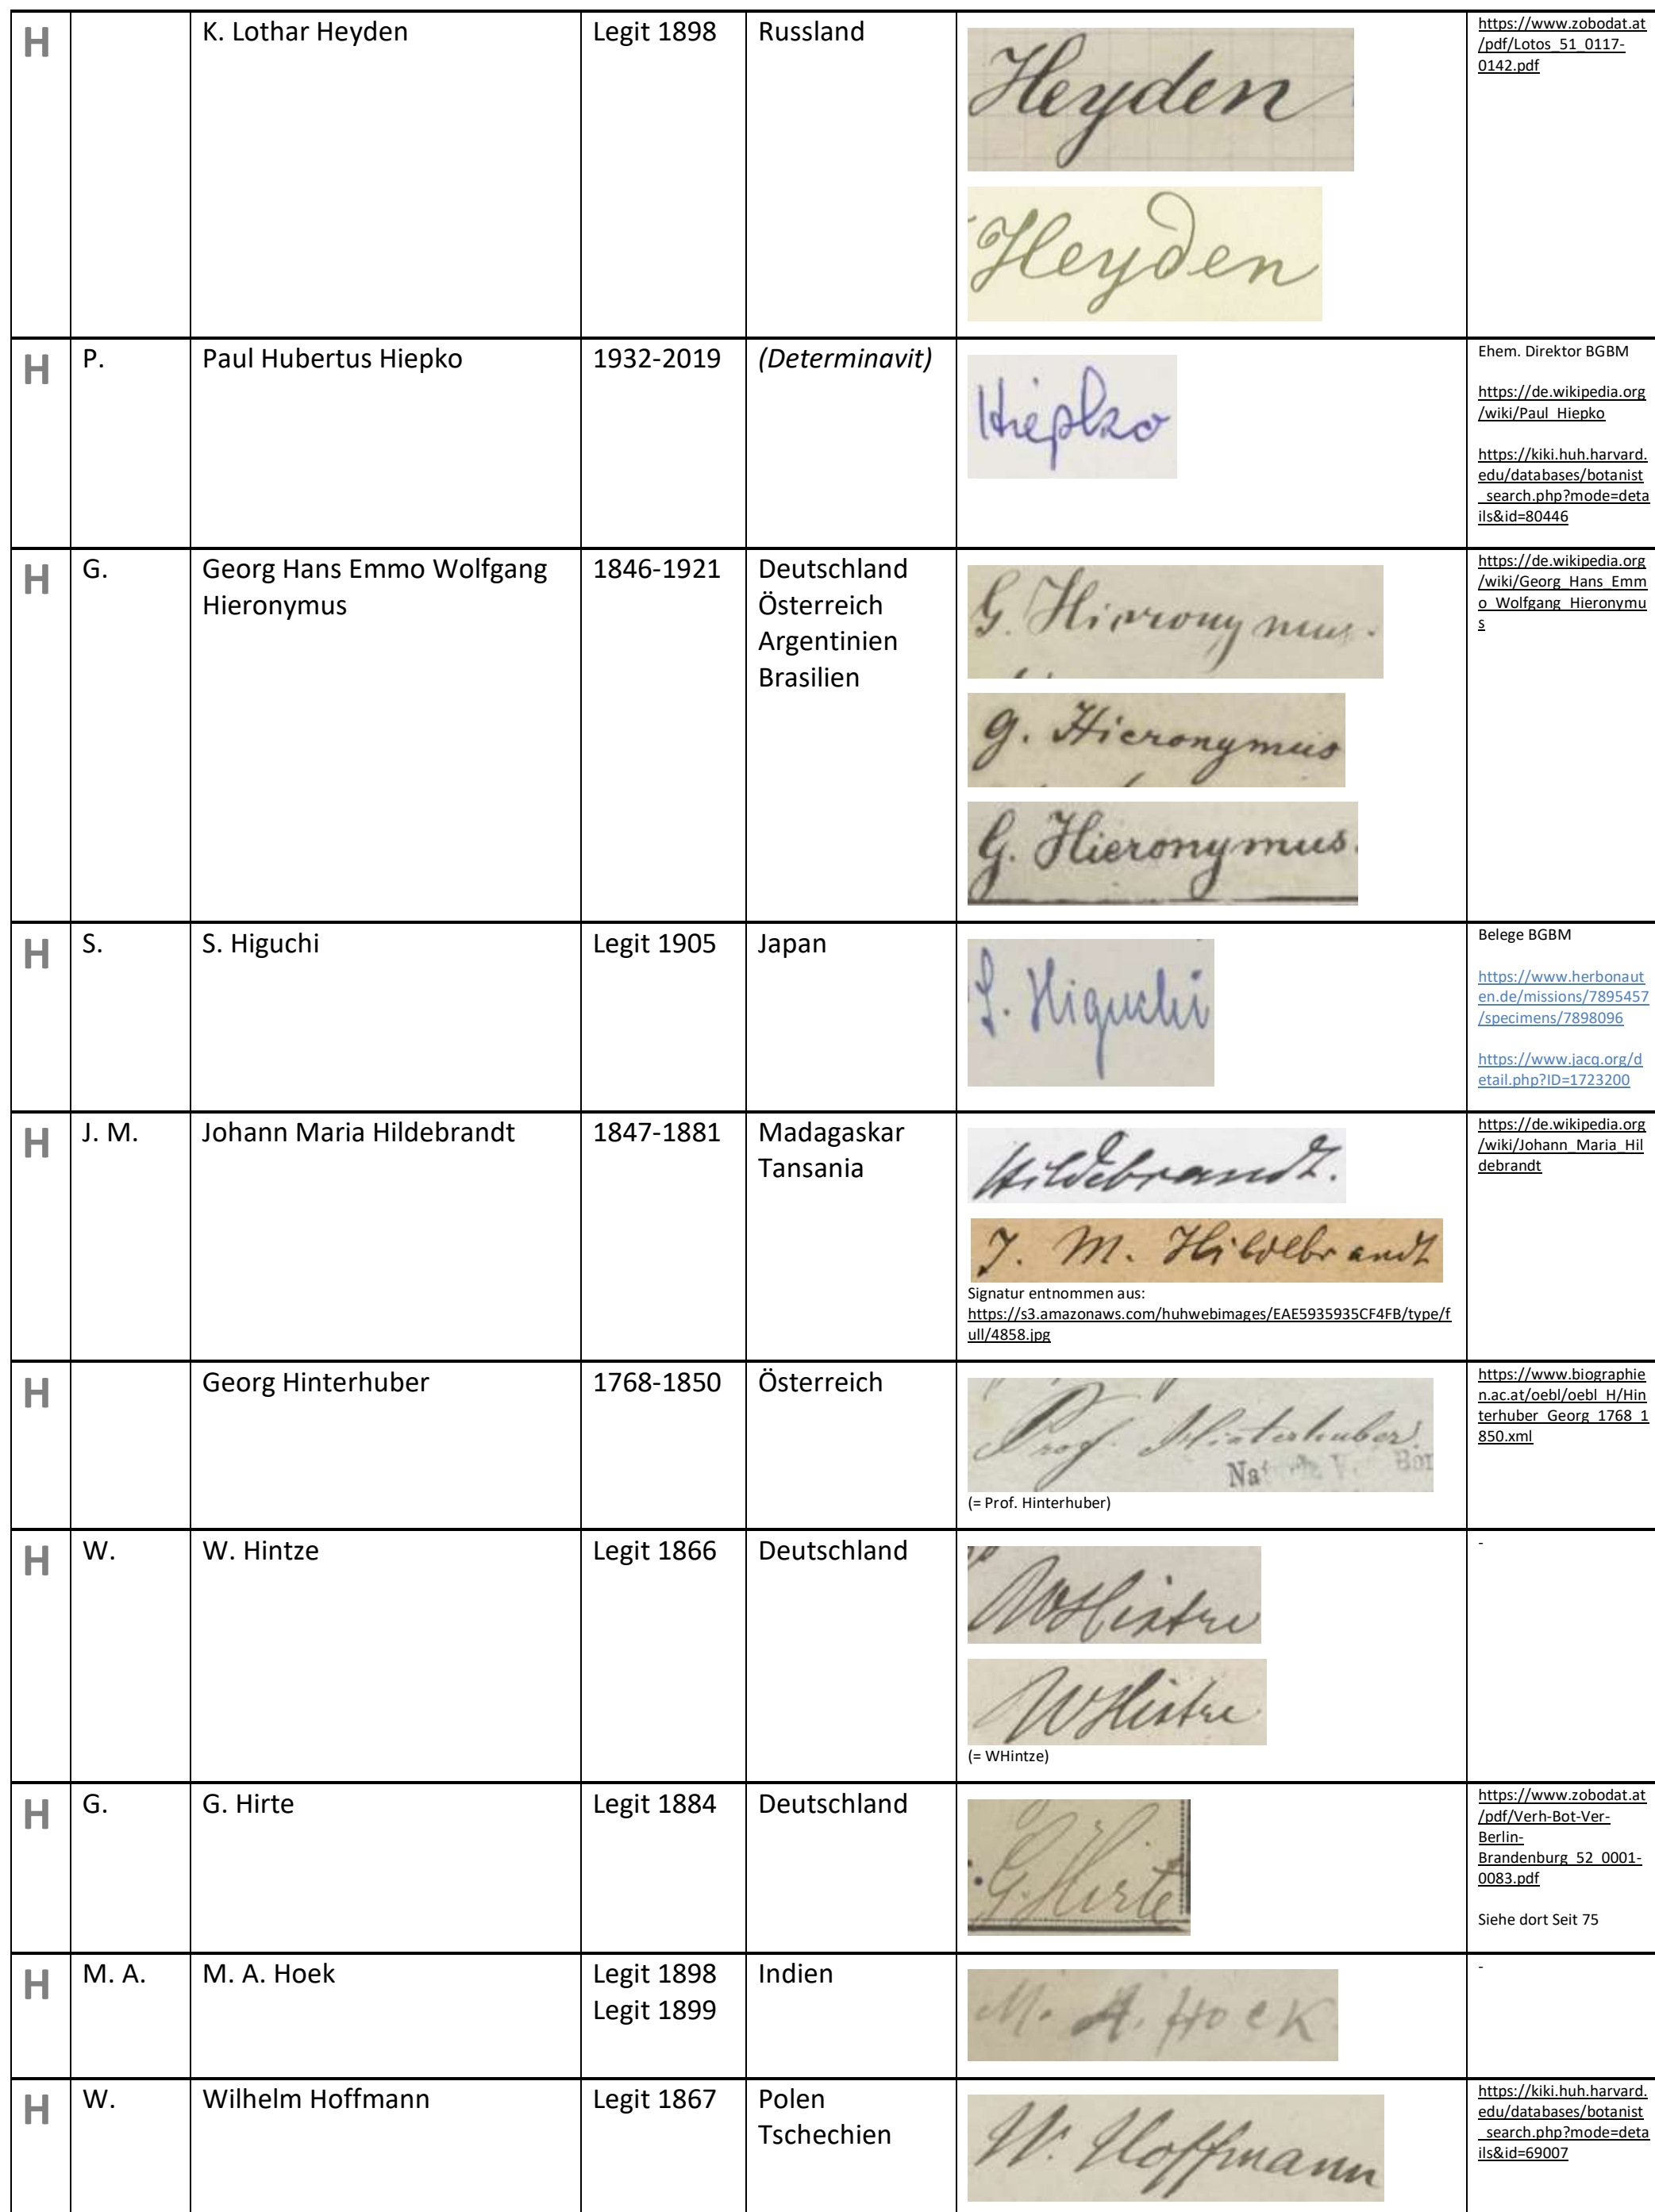 H
K. Lothar Heyden
Legit 1898
Russland
Heyden
Heyden
https://www.zobodat.at
/pdf/Lotos_51_0117-
0142.pdf
H
P.
Paul Hubertus Hiepko
1932-2019
(Determinavit)
Hiepko
Ehem. Direktor BGBM
https://de.wikipedia.org
/wiki/Paul_Hiepko
https://kiki.huh.harvard.
edu/databases/botanist
_search.php?mode=deta
ils&id=80446
H
G.
Georg Hans Emmo Wolfgang
Hieronymus
1846-1921
Deutschland
Österreich
Argentinien
Brasilien
G. Hieronymus.
G. Hieronymus
G. Hieronymus.
https://de.wikipedia.org
/wiki/Georg_Hans_Emm
o_Wolfgang_Hieronymu
s
H
S.
S. Higuchi
Legit 1905
Japan
S. Higuchi
Belege BGBM
https://www.herbonaut
en.de/missions/7895457
/specimens/7898096
https://www.jacq.org/d
etail.php?ID=1723200
H
J. M.
Johann Maria Hildebrandt
1847-1881
Madagaskar
Tansania
Hildebrandt.
J. M. Hildebrandt
Signatur entnommen aus:
https://s3.amazonaws.com/huhwebimages/EAE5935935CF4FB/type/f
ull/4858.jpg
https://de.wikipedia.org
/wiki/Johann_Maria_Hil
debrandt
H
Georg Hinterhuber
1768-1850
Österreich
Prof. Hinterhuber
(= Prof. Hinterhuber)
https://www.biographie
n.ac.at/oebl/oebl_H/Hin
terhuber_Georg_1768_1
850.xml
H
W.
W. Hintze
Legit 1866
Deutschland
WHintze
WHintze
(= WHintze)
-
H
G.
G. Hirte
Legit 1884
Deutschland
G. Hirte
https://www.zobodat.at
/pdf/Verh-Bot-Ver-
Berlin-
Brandenburg_52_0001-
0083.pdf
Siehe dort Seit 75
H
M. A.
M. A. Hoek
Legit 1898
Legit 1899
Indien
M. A. Hoek
-
H
W.
Wilhelm Hoffmann
Legit 1867
Polen
Tschechien
W. Hoffmann
https://kiki.huh.harvard.
edu/databases/botanist
_search.php?mode=deta
ils&id=69007